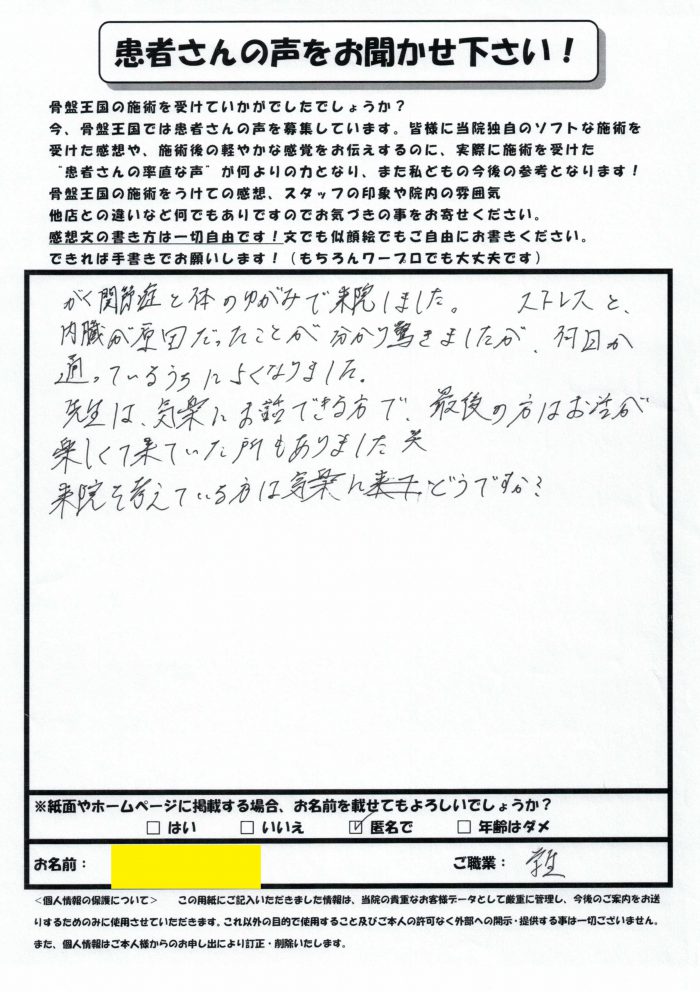 患者さんの声をお聞かせ下さい！
骨盤王国の施術を受けていかがでしたでしょうか？
今、骨盤王国では患者さんの声を募集しています。皆様に当院独自のソフトな施術を
受けた感想や、施術後の軽やかな感覚をお伝えするのに、実際に施術を受けた
"患者さんの率直な声"が何よりの力となり、また私どもの今後の参考となります！
骨盤王国の施術をうけての感想、スタッフの印象や院内の雰囲気
他店との違いなど何でもありですのでお気づきの事をお寄せください。
感想文の書き方は一切自由です！文でも似顔絵でもご自由にお書きください。
できれば手書きでお願いします！（もちろんワープロでも大丈夫です）
がく関節症と体のゆがみで来院しました。 ストレスと、
内臓が原因だったことが分かり驚きましたが、何日か
通っているうちによくなりました。
先生は、気楽にお話できる方で、最後の方はお話が
楽しくて来ていた所もありました 笑
来院を考えている方は気楽に どうですか？
※紙面やホームページに掲載する場合、お名前を載せてもよろしいでしょうか？
□ はい □ いいえ ☑ 匿名で □ 年齢はダメ
お名前： ご職業： 学生
<個人情報の保護について> この用紙にご記入いただきました情報は、当院の貴重なお客様データとして厳重に管理し、今後のご案内をお送
りするためのみに使用させていただきます。これ以外の目的で使用すること及びご本人の許可なく外部への開示・提供する事は一切ございません。
また、個人情報はご本人様からのお申し出により訂正・削除いたします。